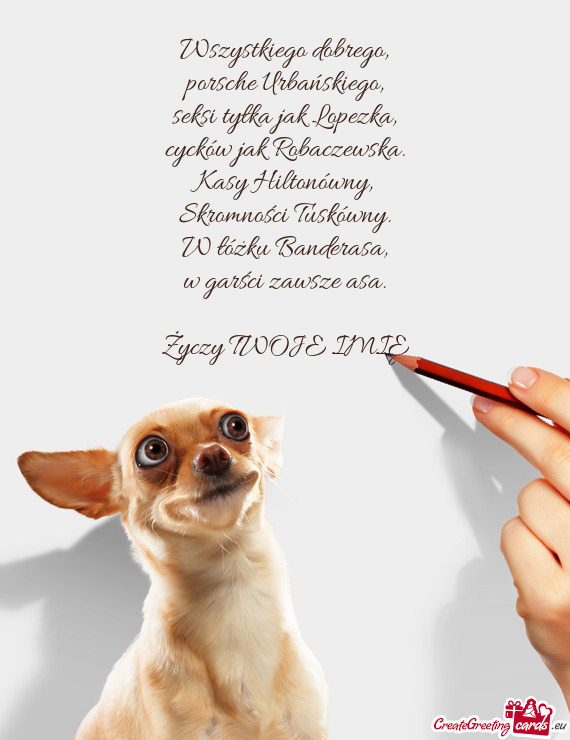 Wszystkiego dobrego,
porsche Urbańskiego,
seksi tyłka jak Lopezka,
cycków jak Robaczewska.
Kasy Hiltonówny,
Skromności Tuskówny.
W łóżku Banderasa,
w garści zawsze asa.
Życzy TWOJE IMIE
CreateGreeting cards .eu